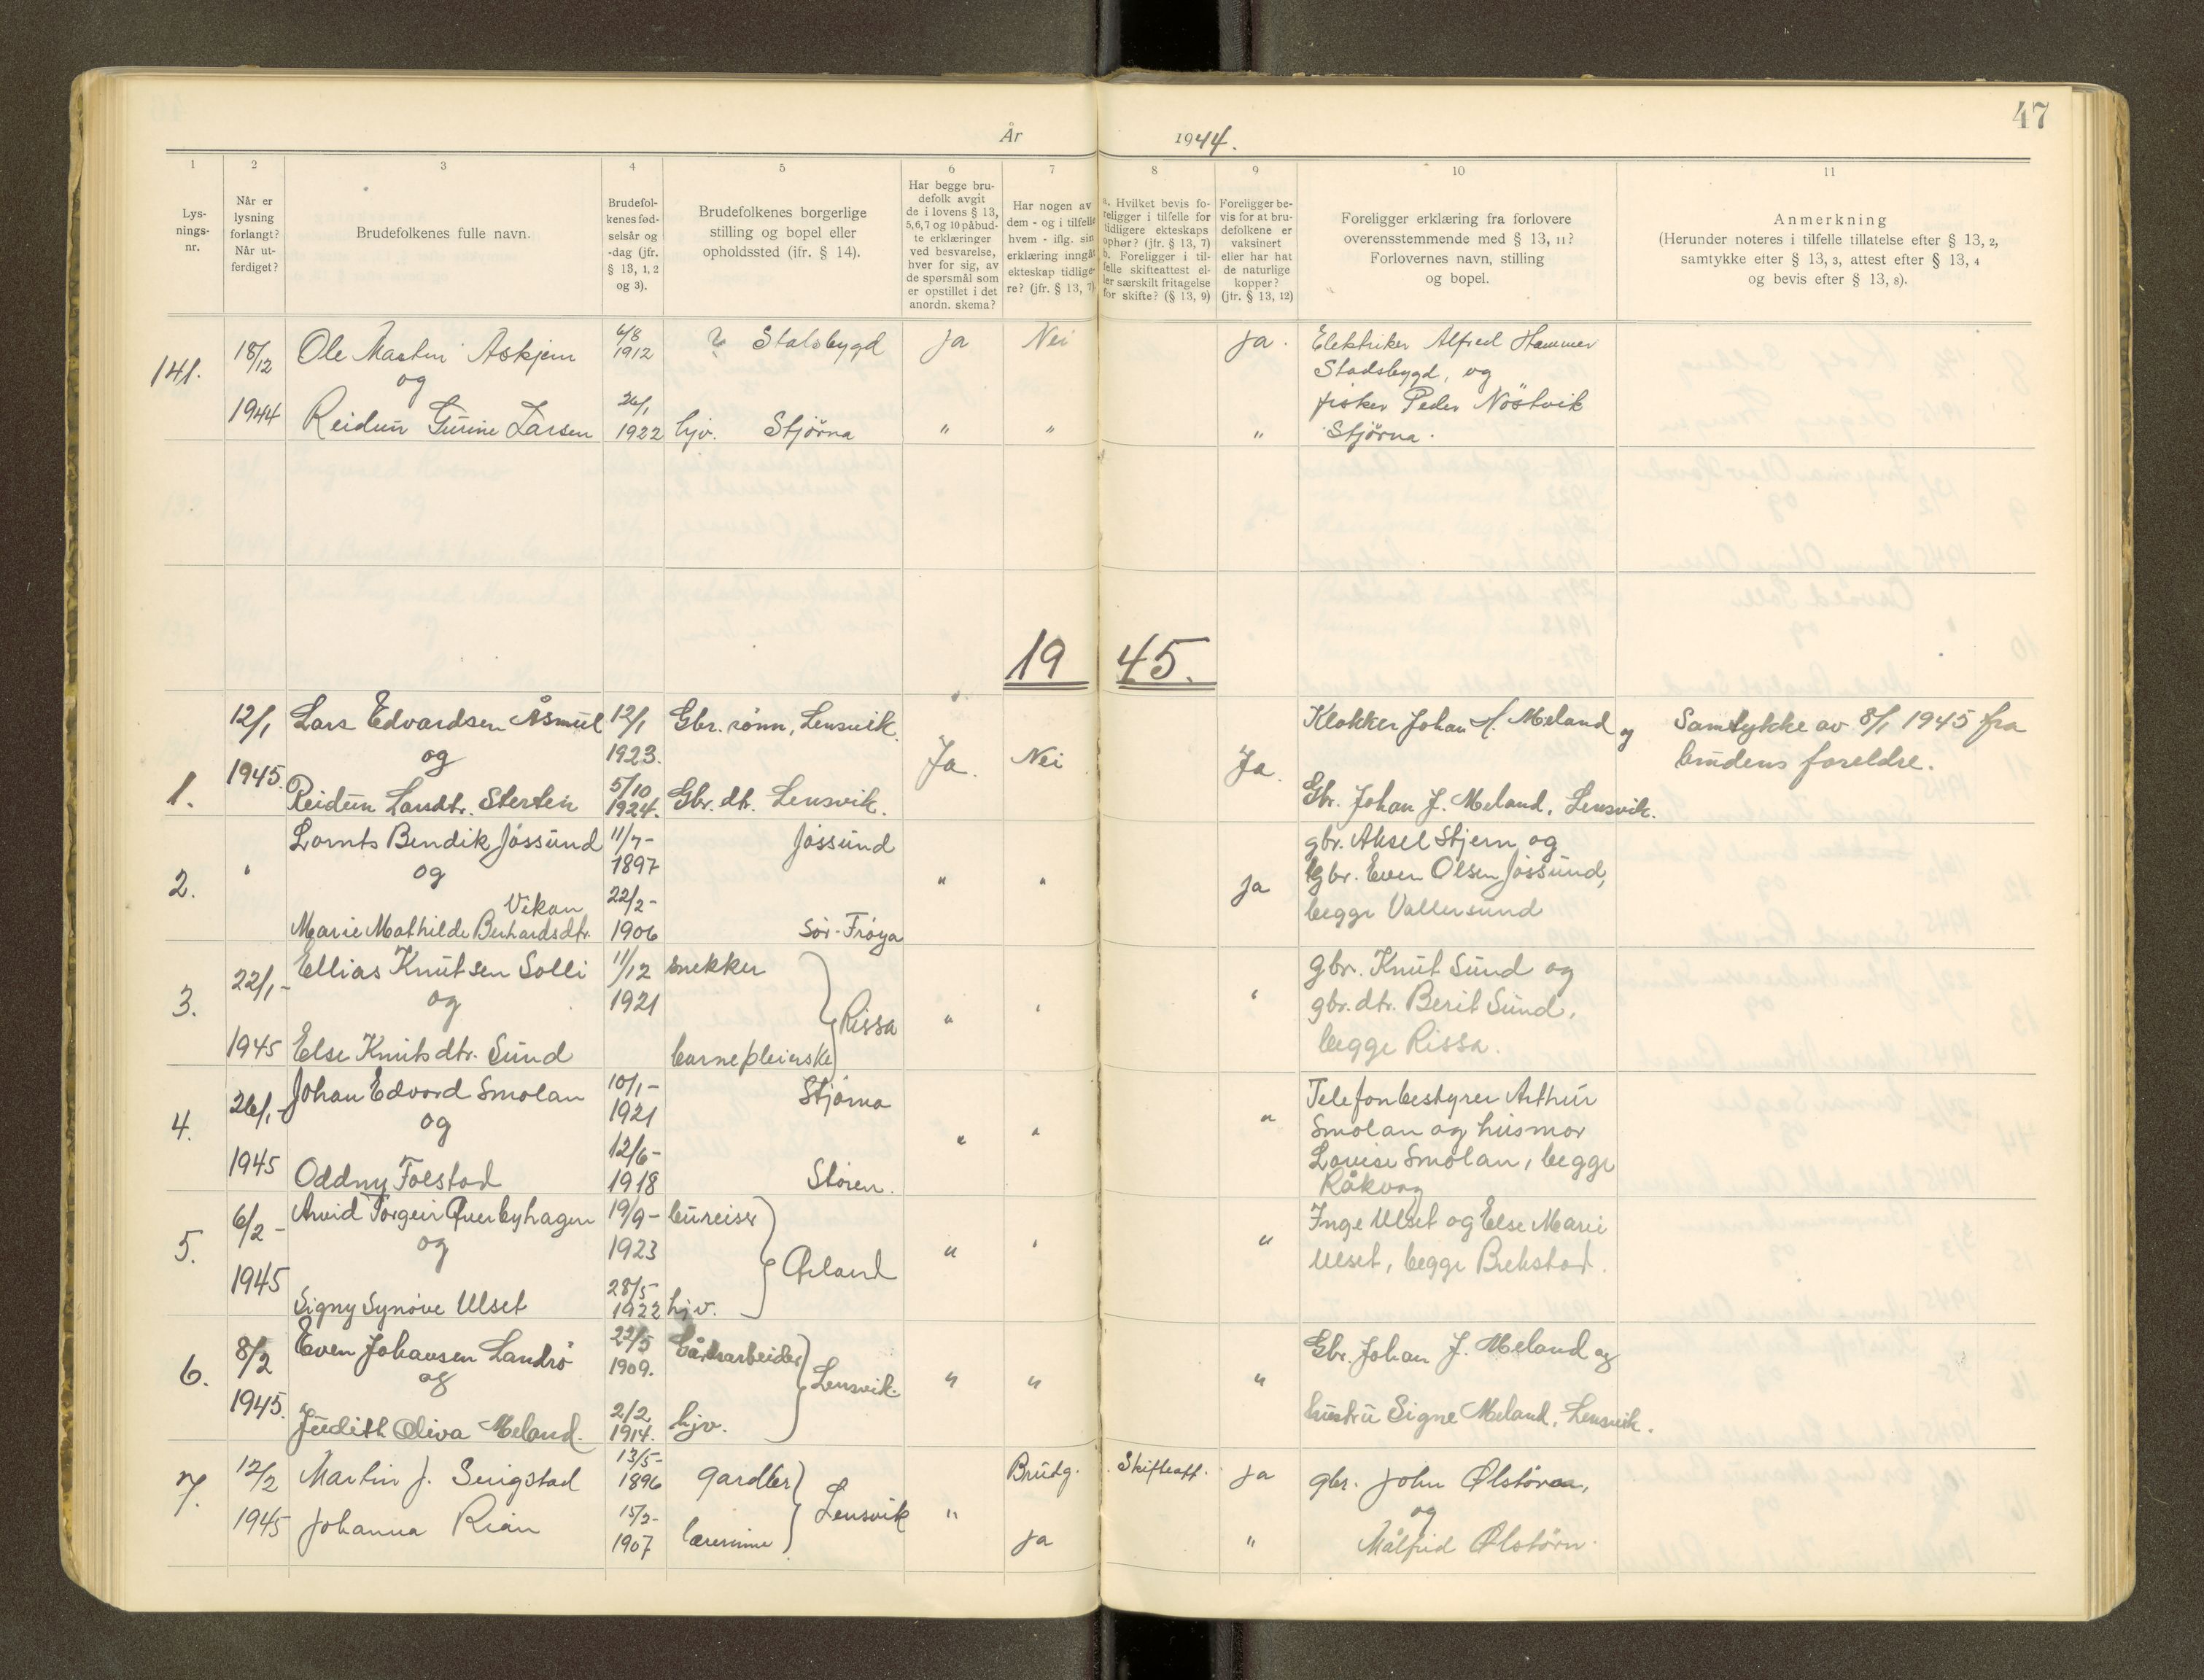 47
År 1944.
1 2 3 4 5 6 7 8 9 10 11
Lys-
nings-
nr.
Når er
lysning
forlangt?
Når ut-
ferdiget?
Brudefolkenes fulle navn.
Brudefol-
kenes fød-
selsår og
-dag (jfr.
§ 13, 1, 2
og 3).
Brudefolkenes borgerlige
stilling og bopel eller
opholdssted (jfr. § 14).
Har begge bru-
defolk avgit
de i lovens § 13,
5, 6, 7 og 10 påbud-
te erklæringer
ved besvarelse,
hver for sig, av
de spørsmål som
er opstillet i det
anordn. skema?
Har nogen av
dem - og i tilfelle
hvem - iflg. sin
erklæring inngåt
ekteskap tidlige-
re? (jfr. § 13, 7)
a. Hvilket bevis fo-
religger i tilfelle for
tidligere ekteskaps
ophør? (jfr. § 13, 7)
b. Foreligger i til-
felle skifteattest el-
ler særskilt fritagelse
for skifte? (§ 13, 9)
Foreligger be-
vis for at bru-
defolkene er
vaksinert
eller har hat
de naturlige
kopper?
(jfr. § 13, 12)
Foreligger erklæring fra forlovere
overensstemmende med § 13, 11?
Forlovernes navn, stilling
og bopel.
Anmerkning
(Herunder noteres i tilfelle tillatelse efter § 13, 2,
samtykke efter § 13, 3, attest efter § 13, 4
og bevis efter § 13, 8).
141.
18/12
1944
Ole Martin Askjem
og
Reidun Gurine Larsen
6/8
1912
26/1
1922
? Stadsbygd
hjv. Stjørna
Ja
"
Nei
"
Ja.
"
Elektriker Alfred Hammer
Stadsbygd, og
fisker Peder Nöstvik
Stjörna.
19 45.
1.
12/1
1945.
Lars Edvardsen Åsmul
og
Reidun Larsdtr. Sterten
12/1
1923.
5/10
1924.
Gbr. sönn, Lensvik.
Gbr. dt. Lensvik.
Ja.
Nei
Ja.
Klokker Johan A. Meland og
Gbr. Johan J. Meland, Lensvik.
Samtykke av 8/1 1945 fra
brudens foreldre.
2.
"
Lornts Bendik Jøssund
og
Vikan
Marie Mathilde Berhardsdtr.
11/7-
1897
22/2-
1906
Jøssund
Sør-Frøya
"
"
Ja
gbr. Aksel Stjern og
gbr. Even Olsen Jøssund,
begge Vallersund
3.
22/1-
1945
Ellias Knutsen Solli
og
Else Knutsdtr. Sund
11/12
1921
snekker
barnepleierske
Rissa
"
"
"
gbr. Knut Sund og
gbr. dtr. Berit Sund,
begge Rissa.
4.
26/1-
1945
Johan Edvard Smolan
og
Oddny Folstad
10/1-
1921
12/6-
1918
Stjørna
Støren.
"
"
"
Telefonbestyrer Arthur
Smolan og husmor
Lovise Smolan, begge
Råkvag
5.
6/2-
1945
Arvid Torgeir Overbyhagen
og
Signy Synøve Ulset
19/9-
1923
28/5-
1922
bureiser
hjv.
Ørland
"
"
"
Inge Ulset og Else Marie
Ulset, begge Brekstad.
6.
8/2
1945.
Even Johansen Landrö
og
Judith Oliva Meland.
22/5
1909.
2/2
1914.
Gårdsarbeider
hjv.
Lensvik.
"
"
"
Gbr. Johan J. Meland og
hustru Signe Meland, Lensvik.
7.
12/2
1945
Martin J. Singstad
Johanna Rian
13/5-
1896
15/3-
1907
gardbr
lærerinne
Lensvik
"
Brudg.
ja
Skifteatt.
ja
"
gbr. John Ølstøren,
og
Målfrid Ølstørn.